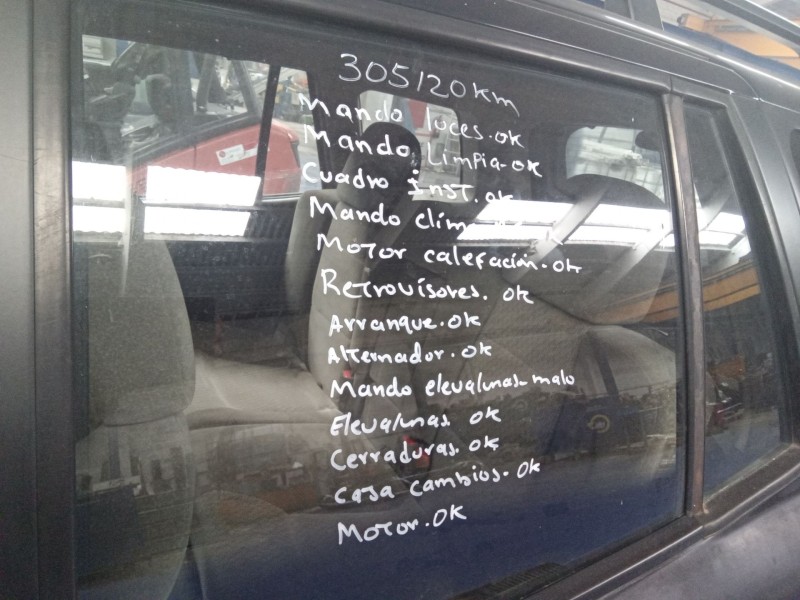 305120km
Mando luces.ok
Mando Limpia-ok
Cuadro inst.ok
Mando clim
Motor calefación.ok
Retrovisores. ok
Arranque.ok
Alternador.ok
Mando elevalunas-malo
Elevalunas ok
Cerraduras.ok
Casa cambios-ok
Motor.ok